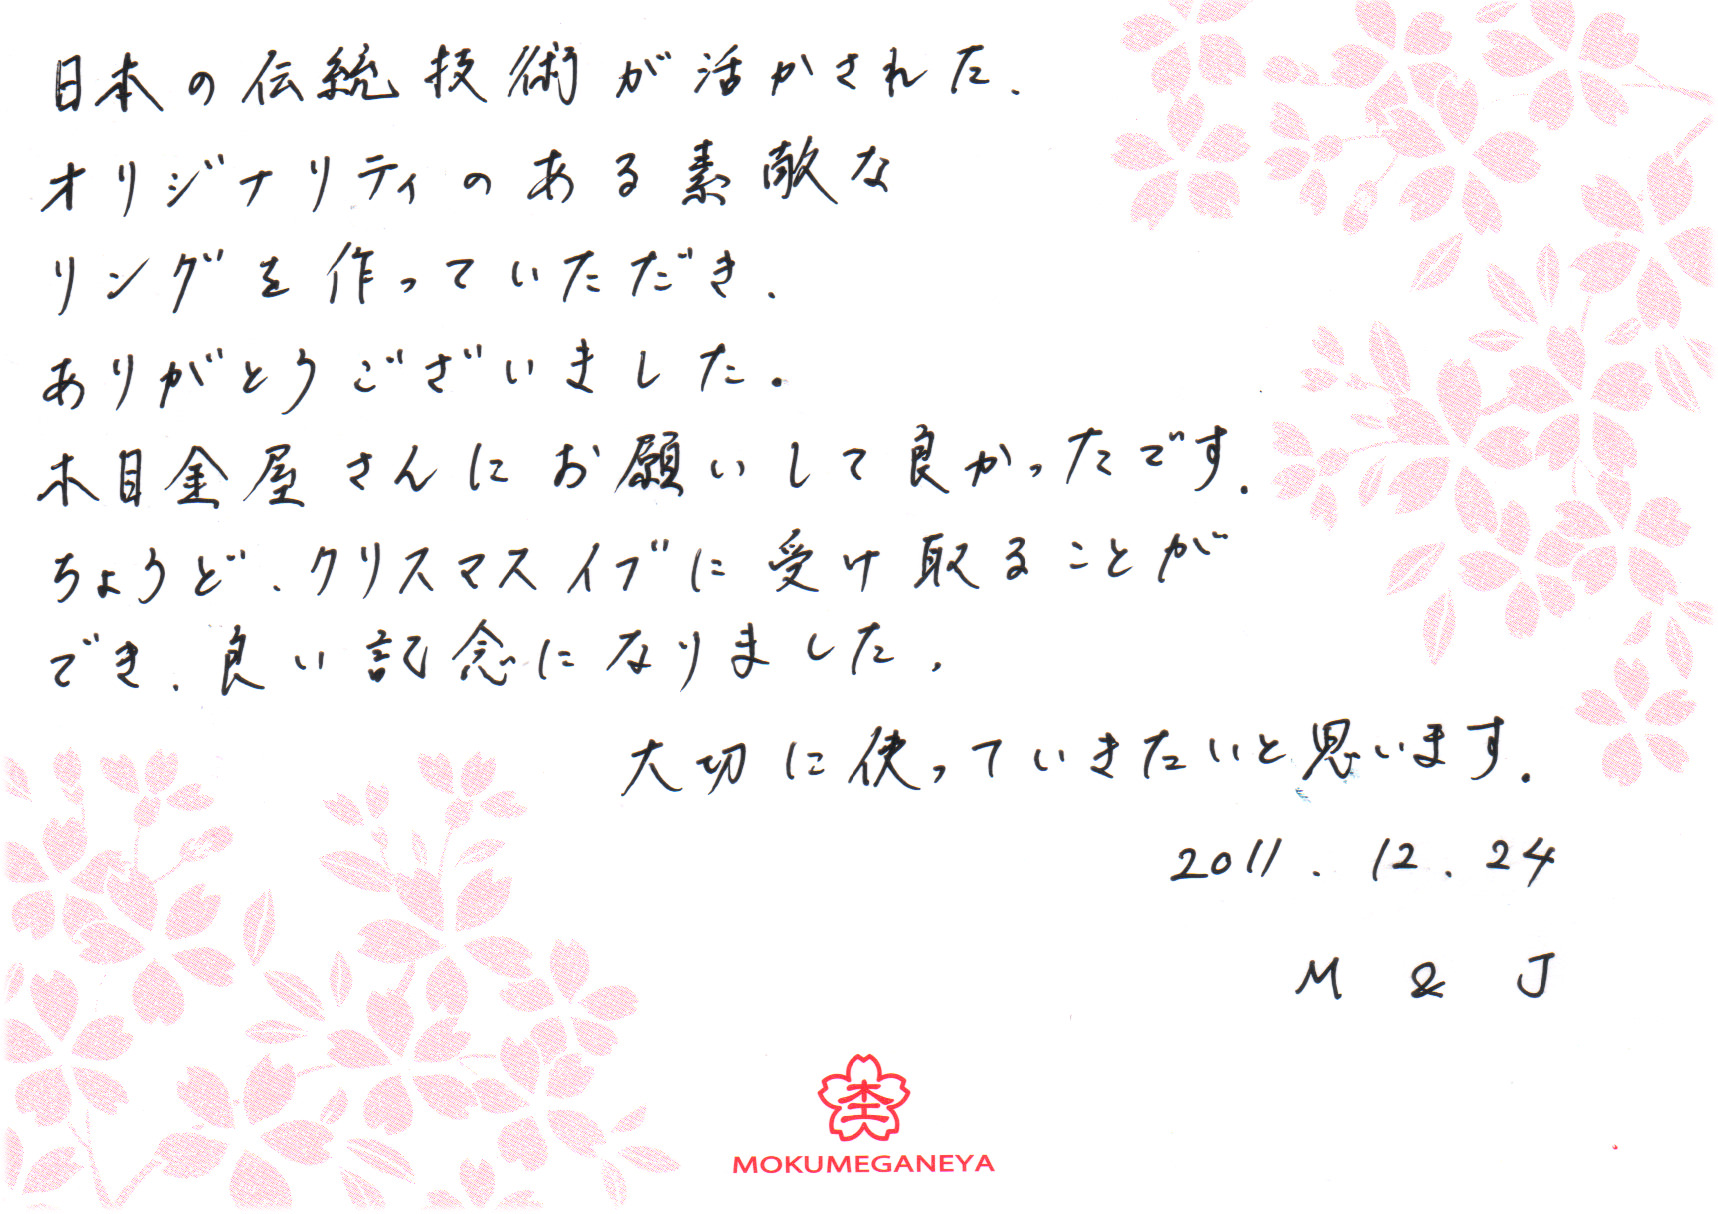 日本の伝統技術が活かされた、
オリジナリティのある素敵な
リングを作っていただき、
ありがとうございました。
木目金屋さんにお願いして良かったです。
ちょうど、クリスマスイブに受け取ることが
でき、良い記念になりました。
大切に使っていきたいと思います。
2011.12.24
M & J
MOKUMEGANEYA